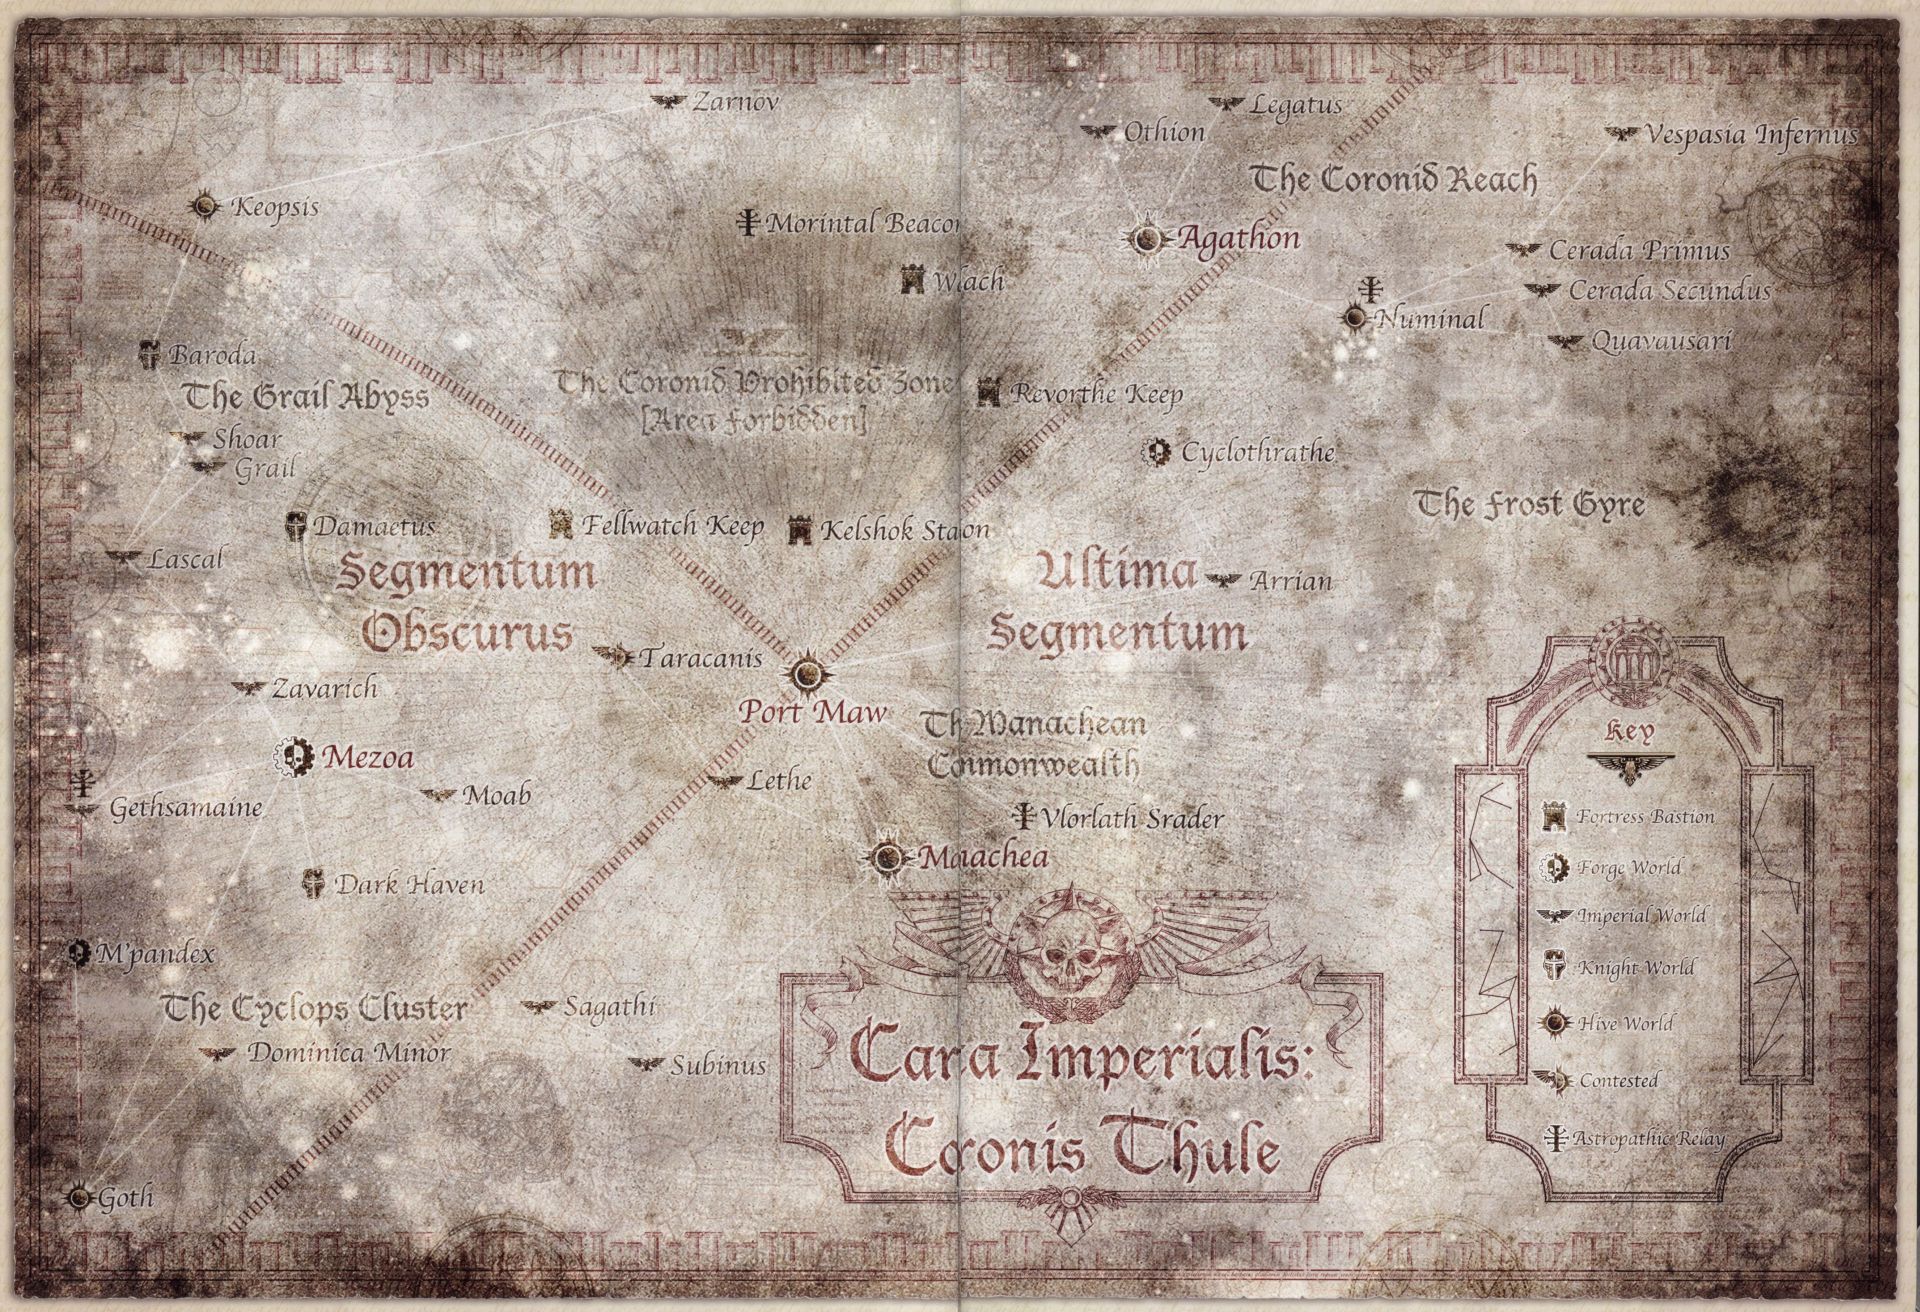 Zarnov
Legatus
Othion
Vespasia Infernus
The Coronid Reach
Keopsis
Morintal Beacon
Agathon
Cerada Primus
Wlach
Cerada Secundus
Numinal
Quavausari
Baroda
The Grail Abyss
The Coronid Prohibited Zone
[Area Forbidden]
Revorthe Keep
Shoar
Grail
Cyclothrathe
The Frost Gyre
Damaetus
Fellwatch Keep
Kelshok Staon
Lascal
Segmentum
Obscurus
Ultima
Segmentum
Arrian
Taracanis
Zavarich
Port Maw
Th Manachean
Commonwealth
Key
Mezoa
Lethe
Moab
Gethsamaine
Vlorlath Srader
Fortress Bastion
Maachea
Forge World
Dark Haven
Imperial World
M'pandex
Knight World
The Cyclops Cluster
Sagathi
Hive World
Dominica Minor
Subinus
Cara Imperialis:
Contested
Coronis Thule
Astropathic Relay
Goth